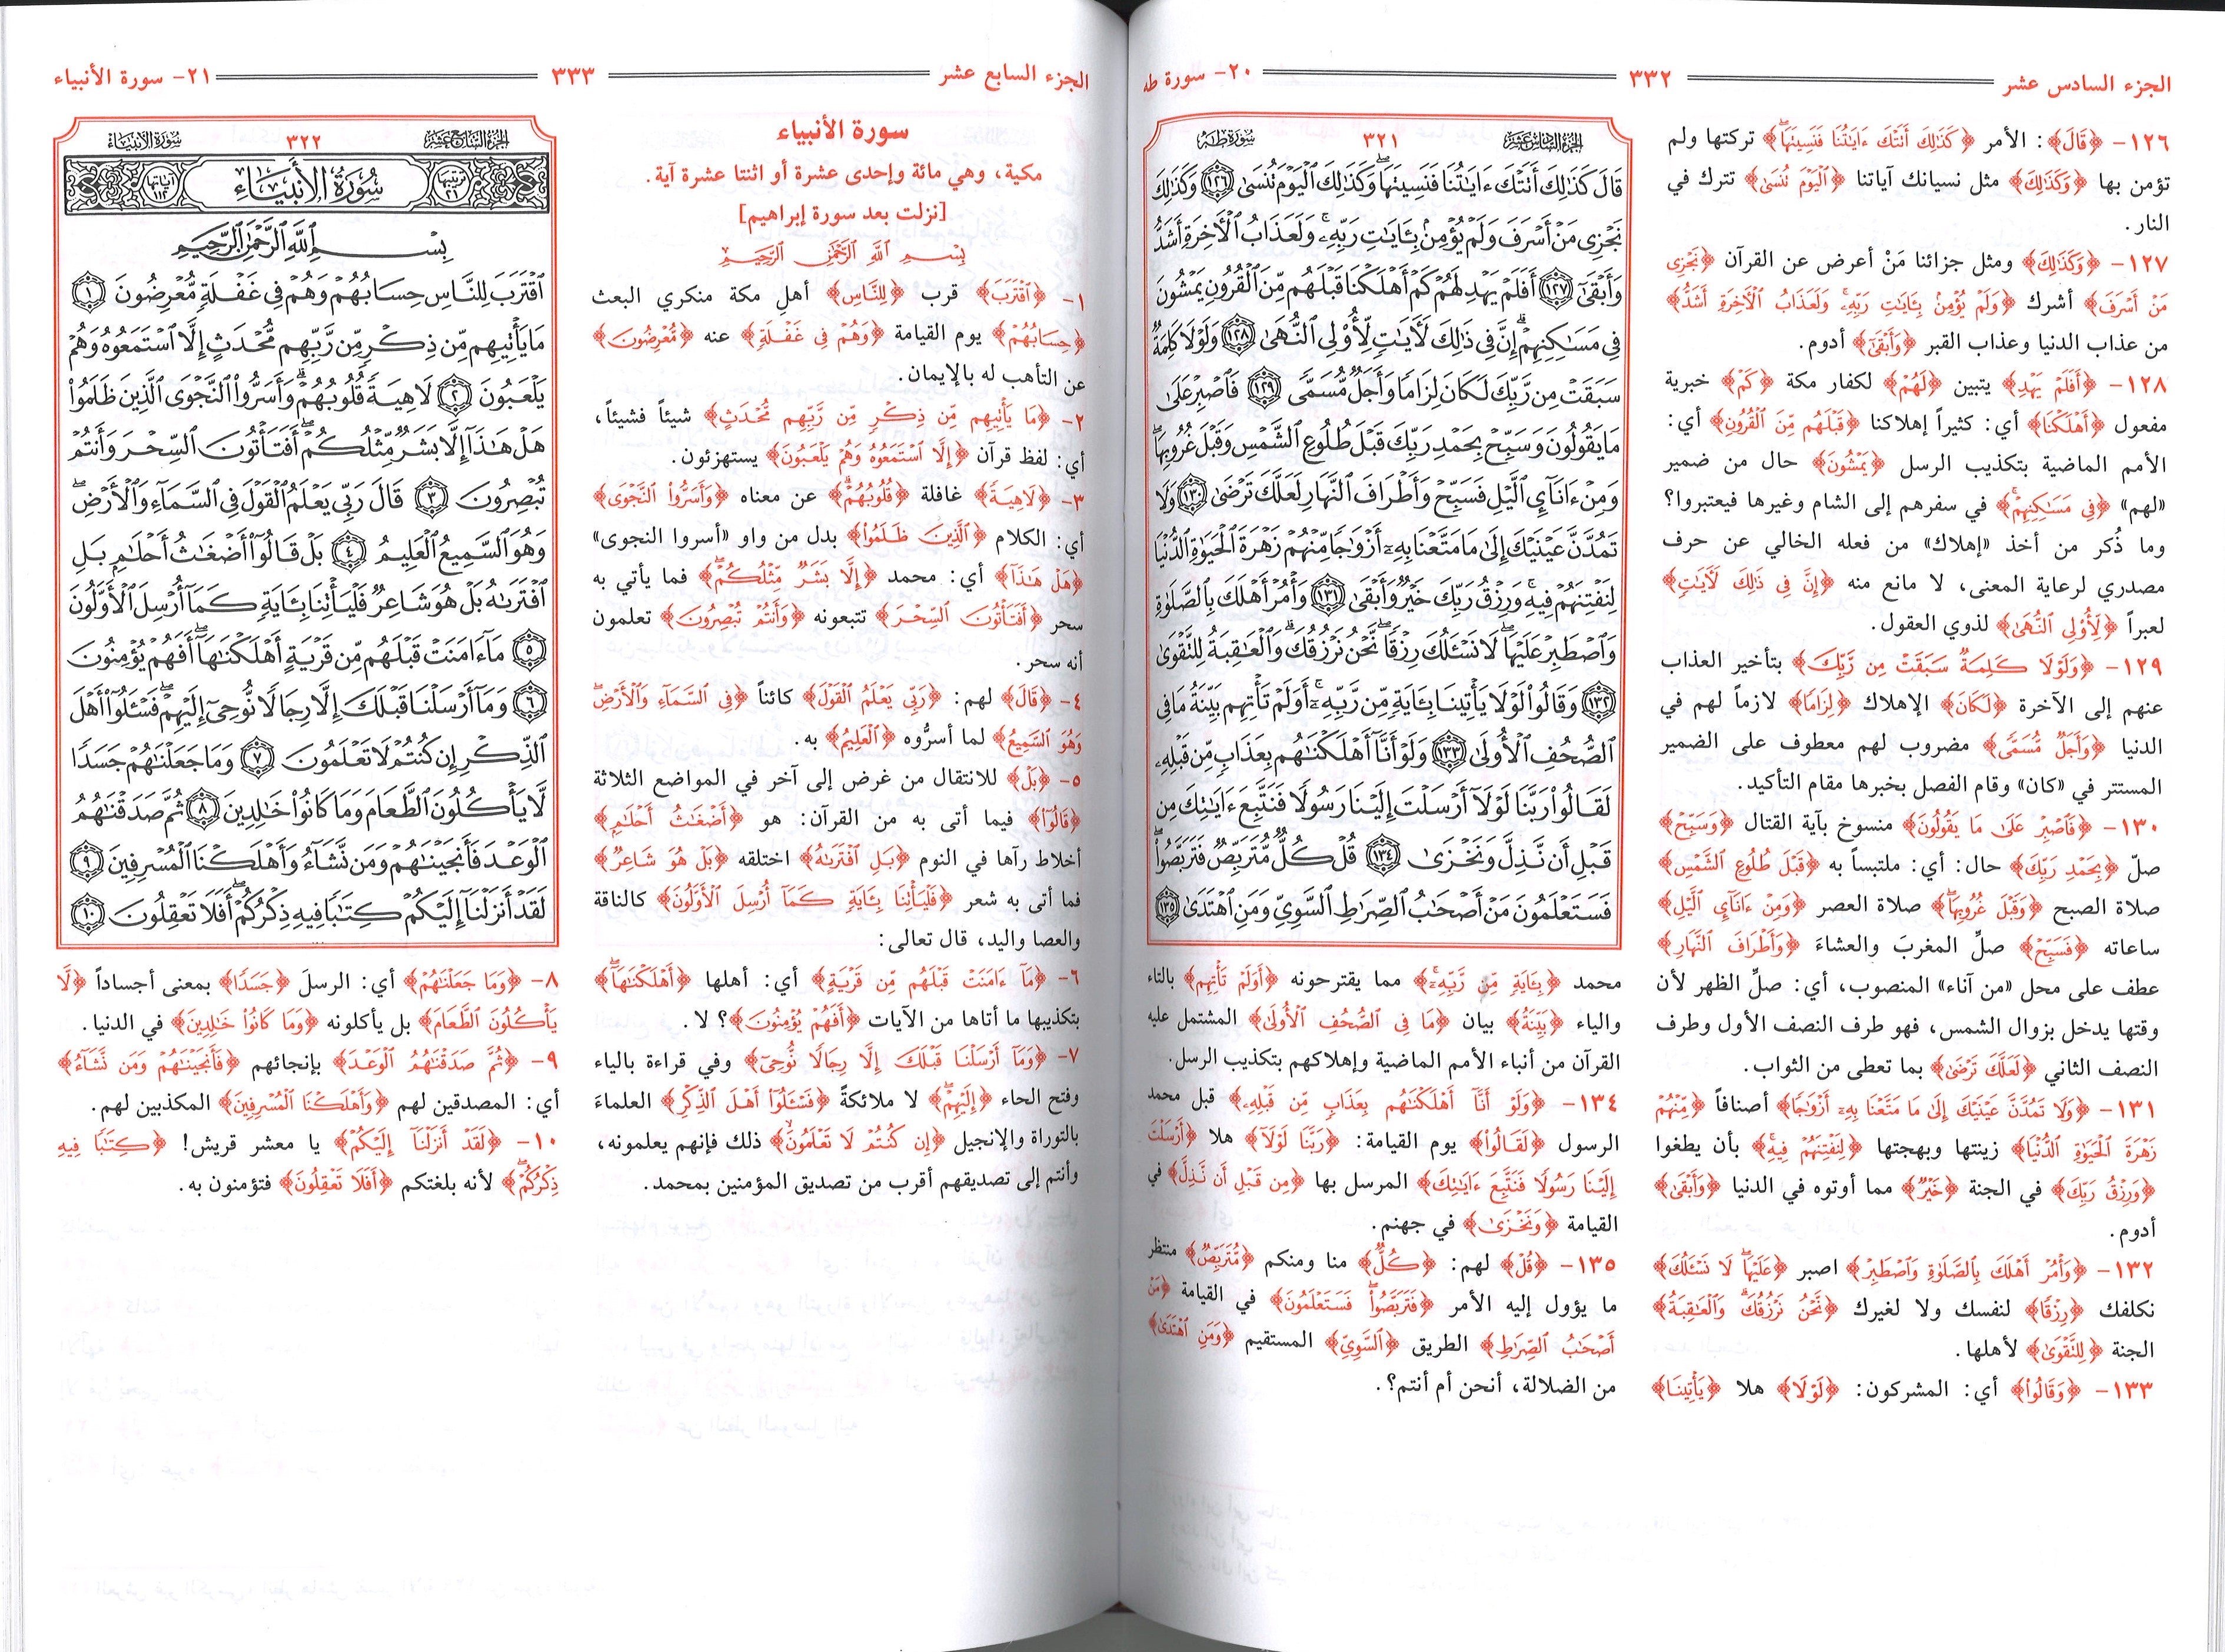 الجزء السادس عشر ٣٣٢ ٢٠- سورة طه
١٢٦- ﴿قَالَ﴾: الأمر ﴿كَذَٰلِكَ أَتَتْكَ ءَايَٰتُنَا فَنَسِيتَهَا ۖ﴾ تركتها ولم
تؤمن بها ﴿وَكَذَٰلِكَ﴾ مثل نسيانك آياتنا ﴿ٱلْيَوْمَ تُنسَىٰ﴾ تترك في
النار.
١٢٧- ﴿وَكَذَٰلِكَ﴾ ومثل جزائنا مَنْ أعرض عن القرآن ﴿نَجْزِى
مَنْ أَسْرَفَ﴾ أشرك ﴿وَلَمْ يُؤْمِنۢ بِـَٔايَٰتِ رَبِّهِۦ ۚ وَلَعَذَابُ ٱلْـَٔاخِرَةِ أَشَدُّ﴾
من عذاب الدنيا وعذاب القبر ﴿وَأَبْقَىٰٓ﴾ أدوم.
١٢٨- ﴿أَفَلَمْ يَهْدِ﴾ يتبين ﴿لَهُمْ﴾ لكفار مكة ﴿كَمْ﴾ خبرية
مفعول ﴿أَهْلَكْنَا﴾ أي: كثيراً إهلاكنا ﴿قَبْلَهُم مِّنَ ٱلْقُرُونِ﴾ أي:
الأمم الماضية بتكذيب الرسل ﴿يَمْشُونَ﴾ حال من ضمير
«لهم» ﴿فِى مَسَٰكِنِهِمْ ۗ﴾ في سفرهم إلى الشام وغيرها فيعتبروا؟
وما ذُكر من أخذ «إهلاك» من فعله الخالي عن حرف
مصدري لرعاية المعنى، لا مانع منه ﴿إِنَّ فِى ذَٰلِكَ لَـَٔايَٰتٍ﴾
لعبراً ﴿لِّأُو۟لِى ٱلنُّهَىٰ﴾ لذوي العقول.
١٢٩- ﴿وَلَوْلَا كَلِمَةٌ سَبَقَتْ مِن رَّبِّكَ﴾ بتأخير العذاب
عنهم إلى الآخرة ﴿لَكَانَ﴾ الإهلاك ﴿لِزَامًا﴾ لازماً لهم في
الدنيا ﴿وَأَجَلٌ مُّسَمًّى﴾ مضروب لهم معطوف على الضمير
المستتر في «كان» وقام الفصل بخبرها مقام التأكيد.
١٣٠- ﴿فَٱصْبِرْ عَلَىٰ مَا يَقُولُونَ﴾ منسوخ بآية القتال ﴿وَسَبِّحْ﴾
صلّ ﴿بِحَمْدِ رَبِّكَ﴾ حال: أي: ملتبساً به ﴿قَبْلَ طُلُوعِ ٱلشَّمْسِ﴾
صلاة الصبح ﴿وَقَبْلَ غُرُوبِهَا ۖ﴾ صلاة العصر ﴿وَمِنْ ءَانَآئِ ٱلَّيْلِ﴾
ساعاته ﴿فَسَبِّحْ﴾ صلِّ المغربَ والعشاءَ ﴿وَأَطْرَافَ ٱلنَّهَارِ﴾
عطف على محل «من آناء» المنصوب، أي: صلِّ الظهر لأن
وقتها يدخل بزوال الشمس، فهو طرف النصف الأول وطرف
النصف الثاني ﴿لَعَلَّكَ تَرْضَىٰ﴾ بما تعطى من الثواب.
١٣١- ﴿وَلَا تَمُدَّنَّ عَيْنَيْكَ إِلَىٰ مَا مَتَّعْنَا بِهِۦٓ أَزْوَٰجًا﴾ أصنافاً ﴿مِّنْهُمْ
زَهْرَةَ ٱلْحَيَوٰةِ ٱلدُّنْيَا﴾ زينتها وبهجتها ﴿لِنَفْتِنَهُمْ فِيهِ ۚ﴾ بأن يطغوا
﴿وَرِزْقُ رَبِّكَ﴾ في الجنة ﴿خَيْرٌ﴾ مما أوتوه في الدنيا ﴿وَأَبْقَىٰ﴾
أدوم.
١٣٢- ﴿وَأْمُرْ أَهْلَكَ بِٱلصَّلَوٰةِ وَٱصْطَبِرْ﴾ اصبر ﴿عَلَيْهَا ۖ لَا نَسْـَٔلُكَ﴾
نكلفك ﴿رِزْقًا﴾ لنفسك ولا لغيرك ﴿نَّحْنُ نَرْزُقُكَ ۗ وَٱلْعَٰقِبَةُ﴾
الجنة ﴿لِلتَّقْوَىٰ﴾ لأهلها.
١٣٣- ﴿وَقَالُوا۟﴾ أي: المشركون: ﴿لَوْلَا﴾ هلا ﴿يَأْتِينَا﴾
الجزء السادس عشر ٣٢١ سورة طه
قَالَ كَذَٰلِكَ أَتَتْكَ ءَايَٰتُنَا فَنَسِيتَهَا ۖ وَكَذَٰلِكَ ٱلْيَوْمَ تُنسَىٰ ١٢٦ وَكَذَٰلِكَ
نَجْزِى مَنْ أَسْرَفَ وَلَمْ يُؤْمِنۢ بِـَٔايَٰتِ رَبِّهِۦ ۚ وَلَعَذَابُ ٱلْـَٔاخِرَةِ أَشَدُّ
وَأَبْقَىٰٓ ١٢٧ أَفَلَمْ يَهْدِ لَهُمْ كَمْ أَهْلَكْنَا قَبْلَهُم مِّنَ ٱلْقُرُونِ يَمْشُونَ
فِى مَسَٰكِنِهِمْ ۗ إِنَّ فِى ذَٰلِكَ لَـَٔايَٰتٍ لِّأُو۟لِى ٱلنُّهَىٰ ١٢٨ وَلَوْلَا كَلِمَةٌ
سَبَقَتْ مِن رَّبِّكَ لَكَانَ لِزَامًا وَأَجَلٌ مُّسَمًّى ١٢٩ فَٱصْبِرْ عَلَىٰ
مَا يَقُولُونَ وَسَبِّحْ بِحَمْدِ رَبِّكَ قَبْلَ طُلُوعِ ٱلشَّمْسِ وَقَبْلَ غُرُوبِهَا ۖ
وَمِنْ ءَانَآئِ ٱلَّيْلِ فَسَبِّحْ وَأَطْرَافَ ٱلنَّهَارِ لَعَلَّكَ تَرْضَىٰ ١٣٠ وَلَا
تَمُدَّنَّ عَيْنَيْكَ إِلَىٰ مَا مَتَّعْنَا بِهِۦٓ أَزْوَٰجًا مِّنْهُمْ زَهْرَةَ ٱلْحَيَوٰةِ ٱلدُّنْيَا
لِنَفْتِنَهُمْ فِيهِ ۚ وَرِزْقُ رَبِّكَ خَيْرٌ وَأَبْقَىٰ ١٣١ وَأْمُرْ أَهْلَكَ بِٱلصَّلَوٰةِ
وَٱصْطَبِرْ عَلَيْهَا ۖ لَا نَسْـَٔلُكَ رِزْقًا ۖ نَّحْنُ نَرْزُقُكَ ۗ وَٱلْعَٰقِبَةُ لِلتَّقْوَىٰ
١٣٢ وَقَالُوا۟ لَوْلَا يَأْتِينَا بِـَٔايَةٍ مِّن رَّبِّهِۦٓ ۚ أَوَلَمْ تَأْتِهِم بَيِّنَةُ مَا فِى
ٱلصُّحُفِ ٱلْأُولَىٰ ١٣٣ وَلَوْ أَنَّآ أَهْلَكْنَٰهُم بِعَذَابٍ مِّن قَبْلِهِۦ
لَقَالُوا۟ رَبَّنَا لَوْلَآ أَرْسَلْتَ إِلَيْنَا رَسُولًا فَنَتَّبِعَ ءَايَٰتِكَ مِن
قَبْلِ أَن نَّذِلَّ وَنَخْزَىٰ ١٣٤ قُلْ كُلٌّ مُّتَرَبِّصٌ فَتَرَبَّصُوا۟ ۖ
فَسَتَعْلَمُونَ مَنْ أَصْحَٰبُ ٱلصِّرَٰطِ ٱلسَّوِىِّ وَمَنِ ٱهْتَدَىٰ ١٣٥
محمد ﴿بِـَٔايَةٍ مِّن رَّبِّهِۦٓ ۚ﴾ مما يقترحونه ﴿أَوَلَمْ تَأْتِهِم﴾ بالتاء
والياء ﴿بَيِّنَةُ﴾ بيان ﴿مَا فِى ٱلصُّحُفِ ٱلْأُولَىٰ﴾ المشتمل عليه
القرآن من أنباء الأمم الماضية وإهلاكهم بتكذيب الرسل.
١٣٤- ﴿وَلَوْ أَنَّآ أَهْلَكْنَٰهُم بِعَذَابٍ مِّن قَبْلِهِۦ﴾ قبل محمد
الرسول ﴿لَقَالُوا۟﴾ يوم القيامة: ﴿رَبَّنَا لَوْلَآ﴾ هلا ﴿أَرْسَلْتَ
إِلَيْنَا رَسُولًا فَنَتَّبِعَ ءَايَٰتِكَ﴾ المرسل بها ﴿مِن قَبْلِ أَن نَّذِلَّ﴾ في
القيامة ﴿وَنَخْزَىٰ﴾ في جهنم.
١٣٥- ﴿قُلْ﴾ لهم: ﴿كُلٌّ﴾ منا ومنكم ﴿مُّتَرَبِّصٌ﴾ منتظر
ما يؤول إليه الأمر ﴿فَتَرَبَّصُوا۟ ۖ فَسَتَعْلَمُونَ﴾ في القيامة ﴿مَنْ
أَصْحَٰبُ ٱلصِّرَٰطِ﴾ الطريق ﴿ٱلسَّوِىِّ﴾ المستقيم ﴿وَمَنِ ٱهْتَدَىٰ﴾
من الضلالة، أنحن أم أنتم؟.
الجزء السابع عشر ٣٣٣ ٢١- سورة الأنبياء
سورة الأنبياء
مكية، وهي مائة وإحدى عشرة أو اثنتا عشرة آية.
[نزلت بعد سورة إبراهيم]
بِسْمِ ٱللَّهِ ٱلرَّحْمَٰنِ ٱلرَّحِيمِ
١- ﴿ٱقْتَرَبَ﴾ قرب ﴿لِلنَّاسِ﴾ أهلِ مكة منكري البعث
﴿حِسَابُهُمْ﴾ يوم القيامة ﴿وَهُمْ فِى غَفْلَةٍ﴾ عنه ﴿مُّعْرِضُونَ﴾
عن التأهب له بالإيمان.
٢- ﴿مَا يَأْتِيهِم مِّن ذِكْرٍ مِّن رَّبِّهِم مُّحْدَثٍ﴾ شيئاً فشيئاً،
أي: لفظ قرآن ﴿إِلَّا ٱسْتَمَعُوهُ وَهُمْ يَلْعَبُونَ﴾ يستهزئون.
٣- ﴿لَاهِيَةً﴾ غافلة ﴿قُلُوبُهُمْ ۗ﴾ عن معناه ﴿وَأَسَرُّوا۟ ٱلنَّجْوَى﴾
أي: الكلام ﴿ٱلَّذِينَ ظَلَمُوا۟﴾ بدل من واو «أسروا النجوى»
﴿هَلْ هَٰذَآ﴾ أي: محمد ﴿إِلَّا بَشَرٌ مِّثْلُكُمْ ۖ﴾ فما يأتي به
سحر ﴿أَفَتَأْتُونَ ٱلسِّحْرَ﴾ تتبعونه ﴿وَأَنتُمْ تُبْصِرُونَ﴾ تعلمون
أنه سحر.
٤- ﴿قَالَ﴾ لهم: ﴿رَبِّى يَعْلَمُ ٱلْقَوْلَ﴾ كائناً ﴿فِى ٱلسَّمَآءِ وَٱلْأَرْضِ ۖ
وَهُوَ ٱلسَّمِيعُ﴾ لما أسرُّوه ﴿ٱلْعَلِيمُ﴾ به.
٥- ﴿بَلْ﴾ للانتقال من غرض إلى آخر في المواضع الثلاثة
﴿قَالُوٓا۟﴾ فيما أتى به من القرآن: هو ﴿أَضْغَٰثُ أَحْلَٰمٍۭ﴾
أخلاط رآها في النوم ﴿بَلِ ٱفْتَرَىٰهُ﴾ اختلقه ﴿بَلْ هُوَ شَاعِرٌ﴾
فما أتى به شعر ﴿فَلْيَأْتِنَا بِـَٔايَةٍ كَمَآ أُرْسِلَ ٱلْأَوَّلُونَ﴾ كالناقة
والعصا واليد، قال تعالى:
٦- ﴿مَآ ءَامَنَتْ قَبْلَهُم مِّن قَرْيَةٍ﴾ أي: أهلها ﴿أَهْلَكْنَٰهَآ ۖ﴾
بتكذيبها ما أتاها من الآيات ﴿أَفَهُمْ يُؤْمِنُونَ﴾؟ لا.
٧- ﴿وَمَآ أَرْسَلْنَا قَبْلَكَ إِلَّا رِجَالًا نُّوحِىٓ﴾ وفي قراءة بالياء
وفتح الحاء ﴿إِلَيْهِمْ ۖ﴾ لا ملائكةً ﴿فَسْـَٔلُوٓا۟ أَهْلَ ٱلذِّكْرِ﴾ العلماءَ
بالتوراة والإنجيل ﴿إِن كُنتُمْ لَا تَعْلَمُونَ﴾ ذلك فإنهم يعلمونه،
وأنتم إلى تصديقهم أقرب من تصديق المؤمنين بمحمد.
الجزء السابع عشر ٣٢٢ سورة الأنبياء
ترتيبها ٢١ سُورَةُ الأَنبِيَاء آياتها ١١٢
بِسْمِ ٱللَّهِ ٱلرَّحْمَٰنِ ٱلرَّحِيمِ
ٱقْتَرَبَ لِلنَّاسِ حِسَابُهُمْ وَهُمْ فِى غَفْلَةٍ مُّعْرِضُونَ ١
مَا يَأْتِيهِم مِّن ذِكْرٍ مِّن رَّبِّهِم مُّحْدَثٍ إِلَّا ٱسْتَمَعُوهُ وَهُمْ
يَلْعَبُونَ ٢ لَاهِيَةً قُلُوبُهُمْ ۗ وَأَسَرُّوا۟ ٱلنَّجْوَى ٱلَّذِينَ ظَلَمُوا۟
هَلْ هَٰذَآ إِلَّا بَشَرٌ مِّثْلُكُمْ ۖ أَفَتَأْتُونَ ٱلسِّحْرَ وَأَنتُمْ
تُبْصِرُونَ ٣ قَالَ رَبِّى يَعْلَمُ ٱلْقَوْلَ فِى ٱلسَّمَآءِ وَٱلْأَرْضِ ۖ
وَهُوَ ٱلسَّمِيعُ ٱلْعَلِيمُ ٤ بَلْ قَالُوٓا۟ أَضْغَٰثُ أَحْلَٰمٍۭ بَلِ
ٱفْتَرَىٰهُ بَلْ هُوَ شَاعِرٌ فَلْيَأْتِنَا بِـَٔايَةٍ كَمَآ أُرْسِلَ ٱلْأَوَّلُونَ
٥ مَآ ءَامَنَتْ قَبْلَهُم مِّن قَرْيَةٍ أَهْلَكْنَٰهَآ ۖ أَفَهُمْ يُؤْمِنُونَ
٦ وَمَآ أَرْسَلْنَا قَبْلَكَ إِلَّا رِجَالًا نُّوحِىٓ إِلَيْهِمْ ۖ فَسْـَٔلُوٓا۟ أَهْلَ
ٱلذِّكْرِ إِن كُنتُمْ لَا تَعْلَمُونَ ٧ وَمَا جَعَلْنَٰهُمْ جَسَدًا
لَّا يَأْكُلُونَ ٱلطَّعَامَ وَمَا كَانُوا۟ خَٰلِدِينَ ٨ ثُمَّ صَدَقْنَٰهُمُ
ٱلْوَعْدَ فَأَنجَيْنَٰهُمْ وَمَن نَّشَآءُ وَأَهْلَكْنَا ٱلْمُسْرِفِينَ ٩
لَقَدْ أَنزَلْنَآ إِلَيْكُمْ كِتَٰبًا فِيهِ ذِكْرُكُمْ ۖ أَفَلَا تَعْقِلُونَ ١٠
٨- ﴿وَمَا جَعَلْنَٰهُمْ﴾ أي: الرسلَ ﴿جَسَدًا﴾ بمعنى أجساداً ﴿لَّا
يَأْكُلُونَ ٱلطَّعَامَ﴾ بل يأكلونه ﴿وَمَا كَانُوا۟ خَٰلِدِينَ﴾ في الدنيا.
٩- ﴿ثُمَّ صَدَقْنَٰهُمُ ٱلْوَعْدَ﴾ بإنجائهم ﴿فَأَنجَيْنَٰهُمْ وَمَن نَّشَآءُ﴾
أي: المصدقين لهم ﴿وَأَهْلَكْنَا ٱلْمُسْرِفِينَ﴾ المكذبين لهم.
١٠- ﴿لَقَدْ أَنزَلْنَآ إِلَيْكُمْ﴾ يا معشر قريش! ﴿كِتَٰبًا فِيهِ
ذِكْرُكُمْ ۖ﴾ لأنه بلغتكم ﴿أَفَلَا تَعْقِلُونَ﴾ فتؤمنون به.